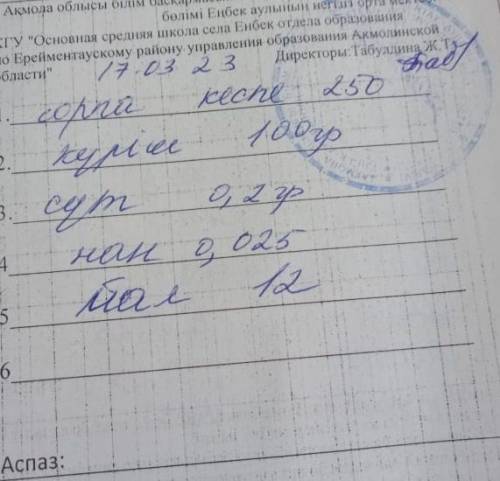 Ақмола облысы білім басқармас
бөлімі Еңбек аулының негізгі орта мекте
КГУ "Основная средняя школа села Енбек отдела образования
по Ерейментаускому району управления образования Акмолинской
области"
Директоры:Табулдина Ж.Т.
17.03 23
1. сорпа кеспе 250
2. күріш 100гр
3. сүт 0,2гр
4 нан 0,025
5 май 12
6
Аспаз: